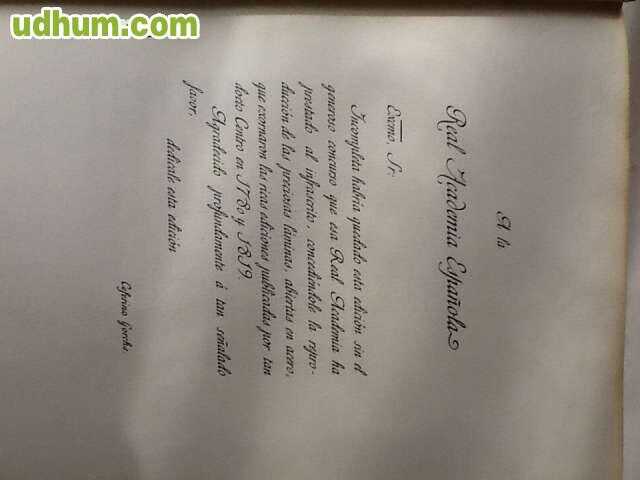 udhum.com
A la
Real Academia Española
Excmo. Sr:
Incompleta habría quedado esta edición sin el
generoso concurso que esa Real Academia ha
prestado al infrascrito, concediéndole la repro-
ducción de las preciosas láminas, abiertas en acero,
que exornaron las ricas ediciones publicadas por tan
docto Centro en 1780 y 1819.
Agradecido profundamente á tan señalado
favor,
dedícale esta edición
Ceferino Gorchs.